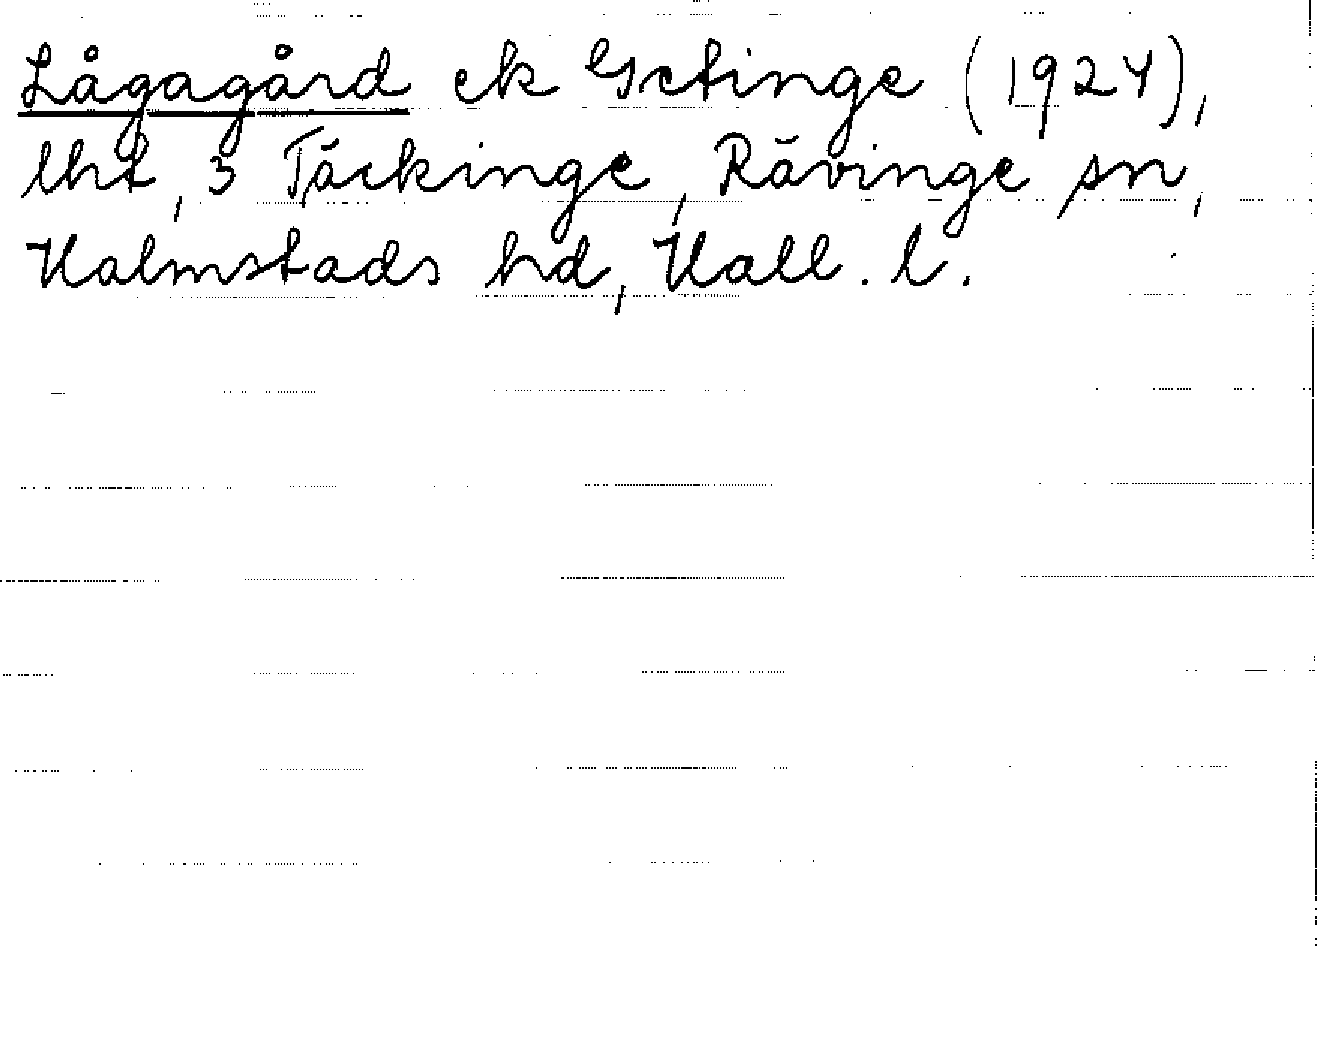 Lågagård ek Getinge (1924),
lht, 3 Täckinge, Rävinge sn,
Halmstads hd, Hall. l.